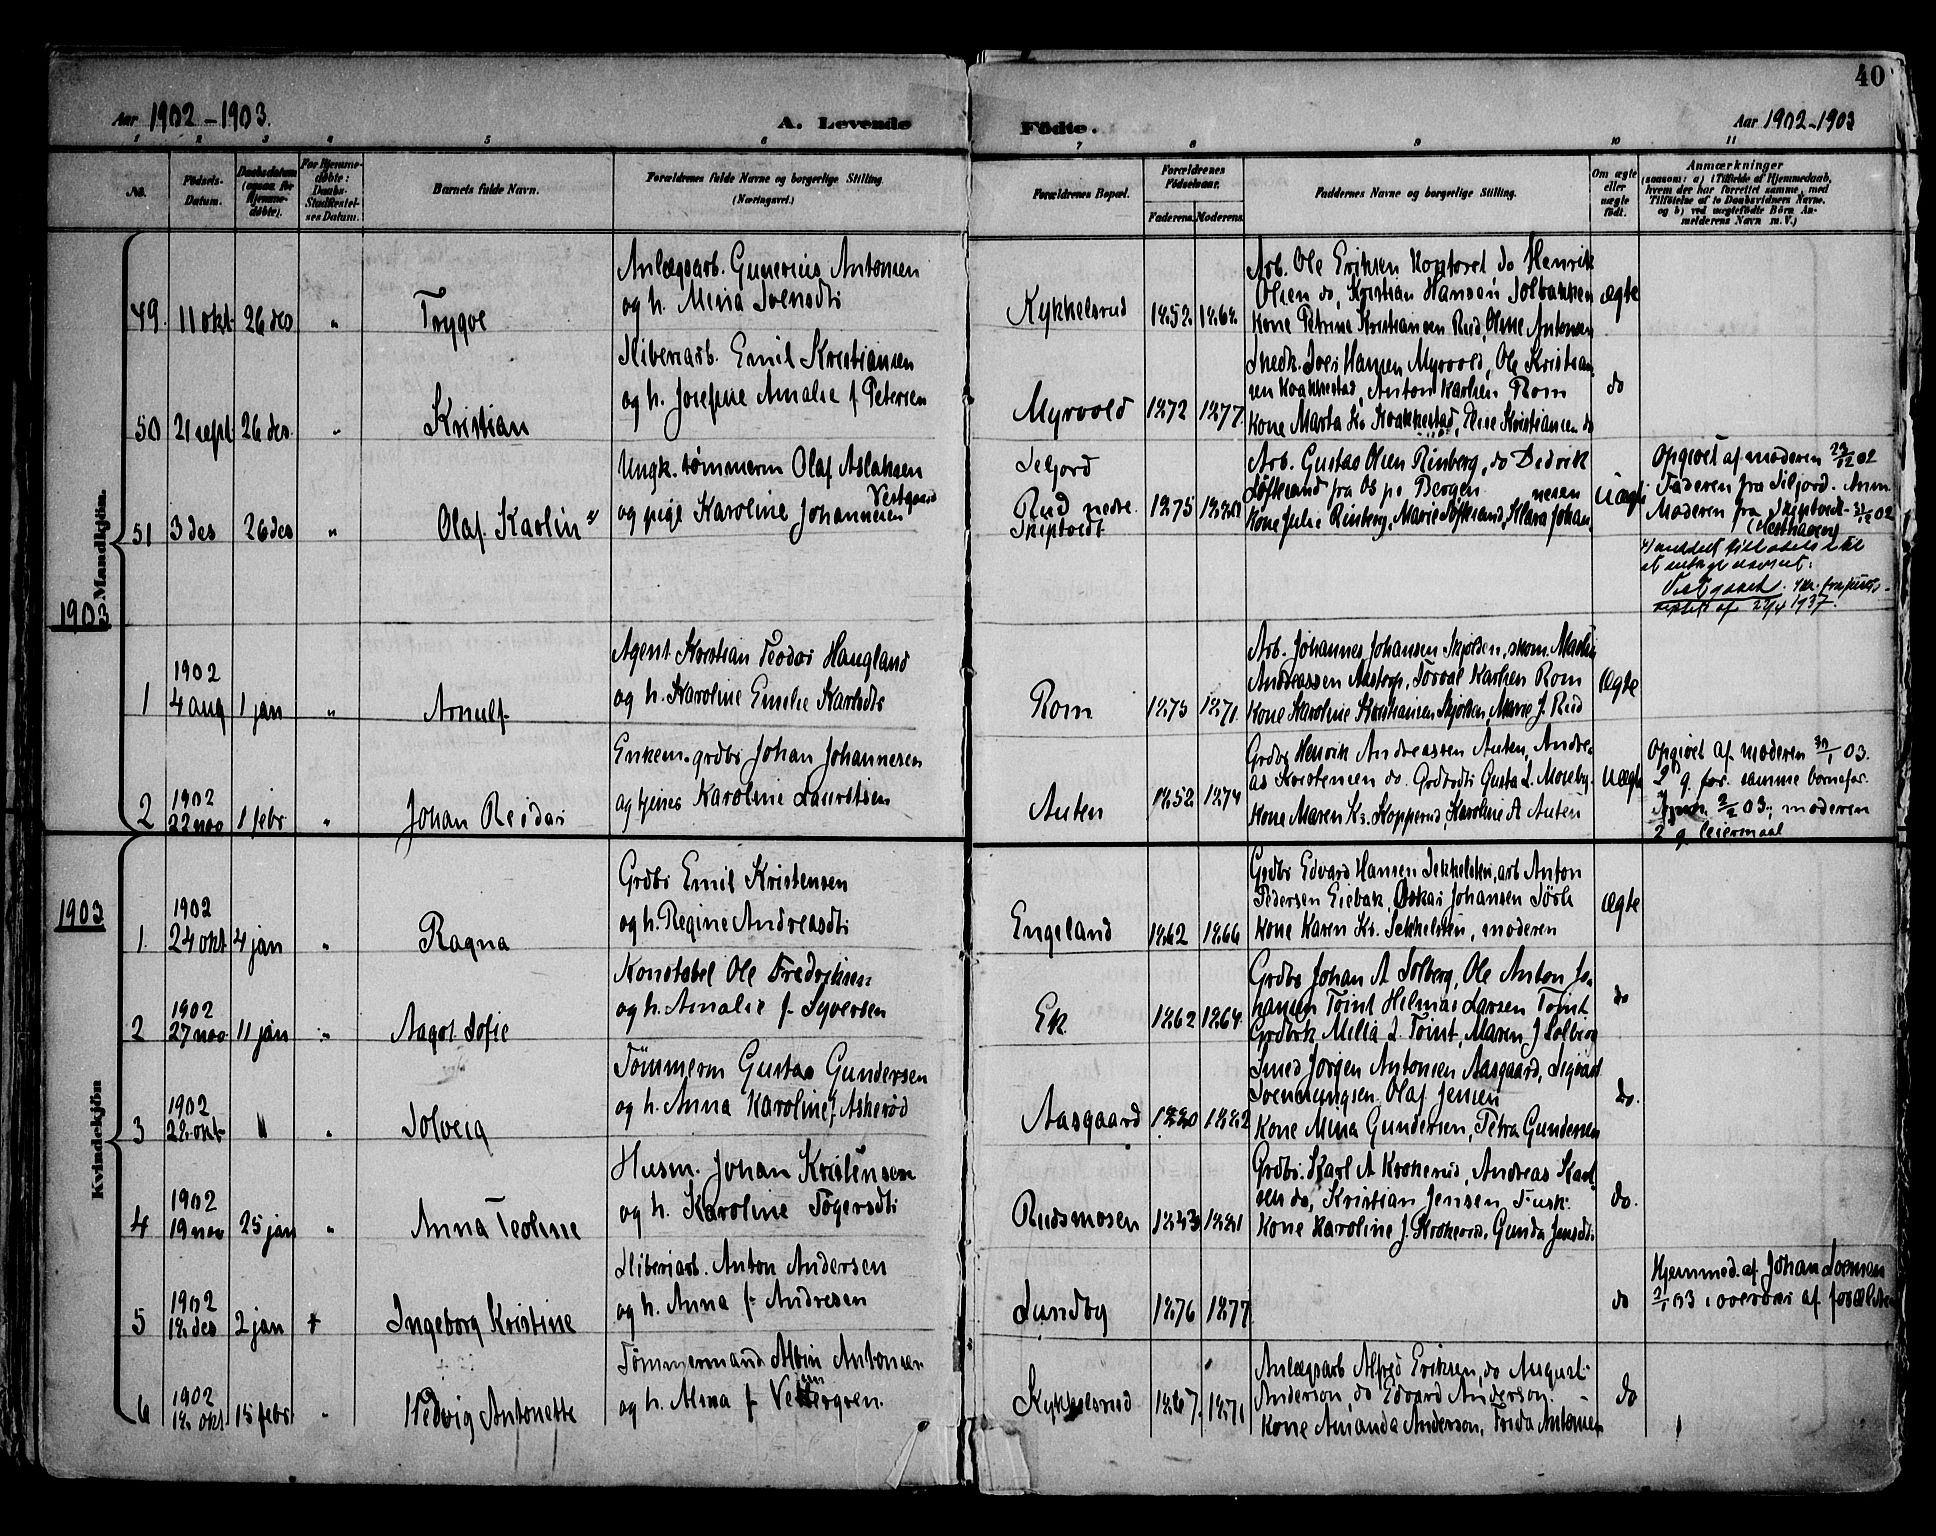 Aar 1902-1903.
A. Levende
Födte.
Aar 1902-1903
40
1 2 3 4 5 6 7 8 9 10 11
No.
Födsels-Datum.
Daabsdatum (ogsaa for Hjemmedöbte).
For Hjemmedöbte: Daabs-Stadfæstelses Datum.
Barnets fulde Navn.
Forældrenes fulde Navne og borgerlige Stilling.
(Næringsvei.)
Forældrenes Bopæl.
Forældrenes Födselsaar.
Faderens. Moderens.
Faddernes Navne og borgerlige Stilling.
Om ægte eller uægte födt.
Anmærkninger
(saasom: a) i Tilfælde af Hjemmedaab, hvem der har forrettet samme, med Tilföielse af to Daabsvidners Navne, og b) ved uægtefödte Börn Anmelderens Navn m. V.)
Mandkjön.
49. 11 okt 26 des " Trygve
Anlægsarb. Gunerius Antonsen
og h. Mina Svensdtr
Kykkelsrud 1852. 1862.
Arb. Ole Eriksen Kontoret do Henrik
Olsen do, Kristian Hansen Solbakken
Kone Petrine Kristiansen Rud, Oline Antonsen
ægte
50 21 sept 26 des " Kristian
Sliberiarb. Emil Kristiansen
og h. Josefine Amalie f Petersen
Myrvold 1872 1877.
Snedk. Iver Hansen Myrvold, Ole Kristian
sen Kvakkestad, Anton Karlsen Rom
Kone Marta Kr. Kvakkestad, Elise Kristiansen do
do
51 3 des 26 des " Olaf Karlin
Ungk. tømmerm Olaf Aslaksen
og pige Karoline Johannesen Vestgaard
Seljord
Rud nedre
Skiptvedt
1875
Arb. Gustav Olsen Rinberg, do Didrik
Søfteland fra Os pr Bergen
Kone Julie Rinberg, Marie Søfteland, Klara Johan
nesen
Uægte
Opgivet af moderen 29/12 02
Faderen fra Siljord. Anm
Moderen fra Skiptvedt
at antage navnet:
Vestgaard
1937.
1903
1 1902 4 aug 1 jan " Arnulf
Agent Kristian Teodor Haugland
og h. Karoline Emelie Karlsdtr
Rom 1875 1871.
Arb. Johannes Johansen Skjolden, skom. Martin
Andreassen Aastorp, Torval Karlsen Rom
Kone Karoline Kristiansen Skjolden, Marie J. Rud
ægte
2 1902 22 nov 1 febr " Johan Reidar
Enkem. grdbr Johan Johannesen
og tjenes Karoline Lauritsen
Auten 1852 1874
Grdbr Henrik Andreassen Auten, Andre-
as Kristensen do. Grdbrdtr Gusta L. Moreby
Kone Maren Kr. Kopperud, Karoline A Auten
Uægte
Opgivet af moderen 30/1 03.
2 g. for samme barnefar
2/2 03; moderen
2 g leiermaal
Kvindekjön
1903
1. 1902 24 okt 4 jan " Ragna
Grdbr Emil Kristensen
og h. Regine Andreasdtr
Engeland 1862 1866
Grdbr Edvard Hansen Sekkelsten, arb Anton
Pedersen Eiebak, Oskar Johansen Sørli
Kone Karen Kr. Sekkelsten, moderen
ægte
2 1902 27 nov 11 jan " Aagot Sofie
Konstabel Ole Fredriksen
og h. Amalie f. Syversen
Ek 1862 1864.
Grdbr Johan A Solberg, Ole Anton Jo-
hansen Toint Hilmar Larsen Toint
Grdbrk Milla L Toint, Maren J Solberg
do
3 1902 22. okt " " Solveig
Tømmerm Gustav Gundersen
og h. Anna Karoline f. Askerød
Aasgaard 1880 1882
Smed Jørgen Antonsen Aasgaard, Sigvart
Svenningsen Olaf Jensen
Kone Mina Gundersen, Petra Gundersen
do.
4 1902 19 nov 25 jan " Anna Teoline
Husm. Johan Kristensen
og h. Karoline Tøgersdtr
Rudsmosen 1843 1881
Grdbr. Karl A Krokerud, Andreas Karl
sen do, Kristian Jensen Fusk.
Kone Karoline J. Krokerud. Gunda Jensdtr.
do.
5 1902 18 des 2 jan + Ingeborg Kristine
Sliberiarb. Anton Andersen
og h. Anna f. Andresen
Lundby 1876 1877
do
Hjemmed. af Johan Svensen
2/1 03 i overvær af forældrene
6 1902 18. okt 15 febr " Hedvig Antonette
Tømmermand Alvin Antonsen
og h. Alma f
Kykkelsrud 1867. 1871
Anlægsarb Alfred Eriksen, do August
Anderson, do Edvard Anderson.
Kone Amanda Anderson, Frida Antonsen
do